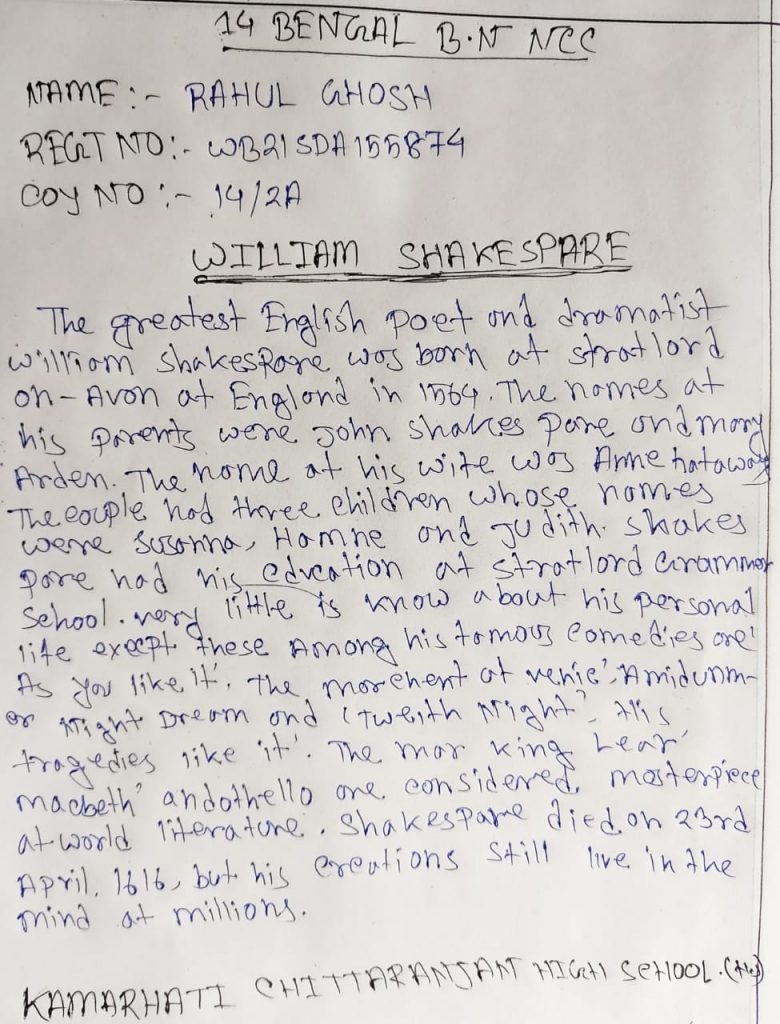 14 BENGAL B.N NCC
NAME :- RAHUL GHOSH
REGT NO :- WB21SDA155874
COY NO :- 14/2A
WILLIAM SHAKESPARE
The greatest English poet and dramatist
william shakespare was born at stratlord
on-Avon at England in 1564. The names at
his parents were John shakes pare and mary
Arden. The name at his wite was Anne hataway
The couple had three children whose names
were Susanna, Hamne and Judith. shakes
pare had his education at stratlord Grammer
School. very little is know about his personal
life except these Among his tamous comedies are'
As you like it', The morehent at venie', Amidunm-
er Night Dream and 'Tweith Night' His
tragedies like it'. The mar king Lear'
macbeth' andothello are considered, masterpiece
at world literature. Shakespare died on 23rd
April, 1616, but his creations still live in the
mind at millions.
KAMARHATI CHITTARANJAN HIGH SCHOOL.